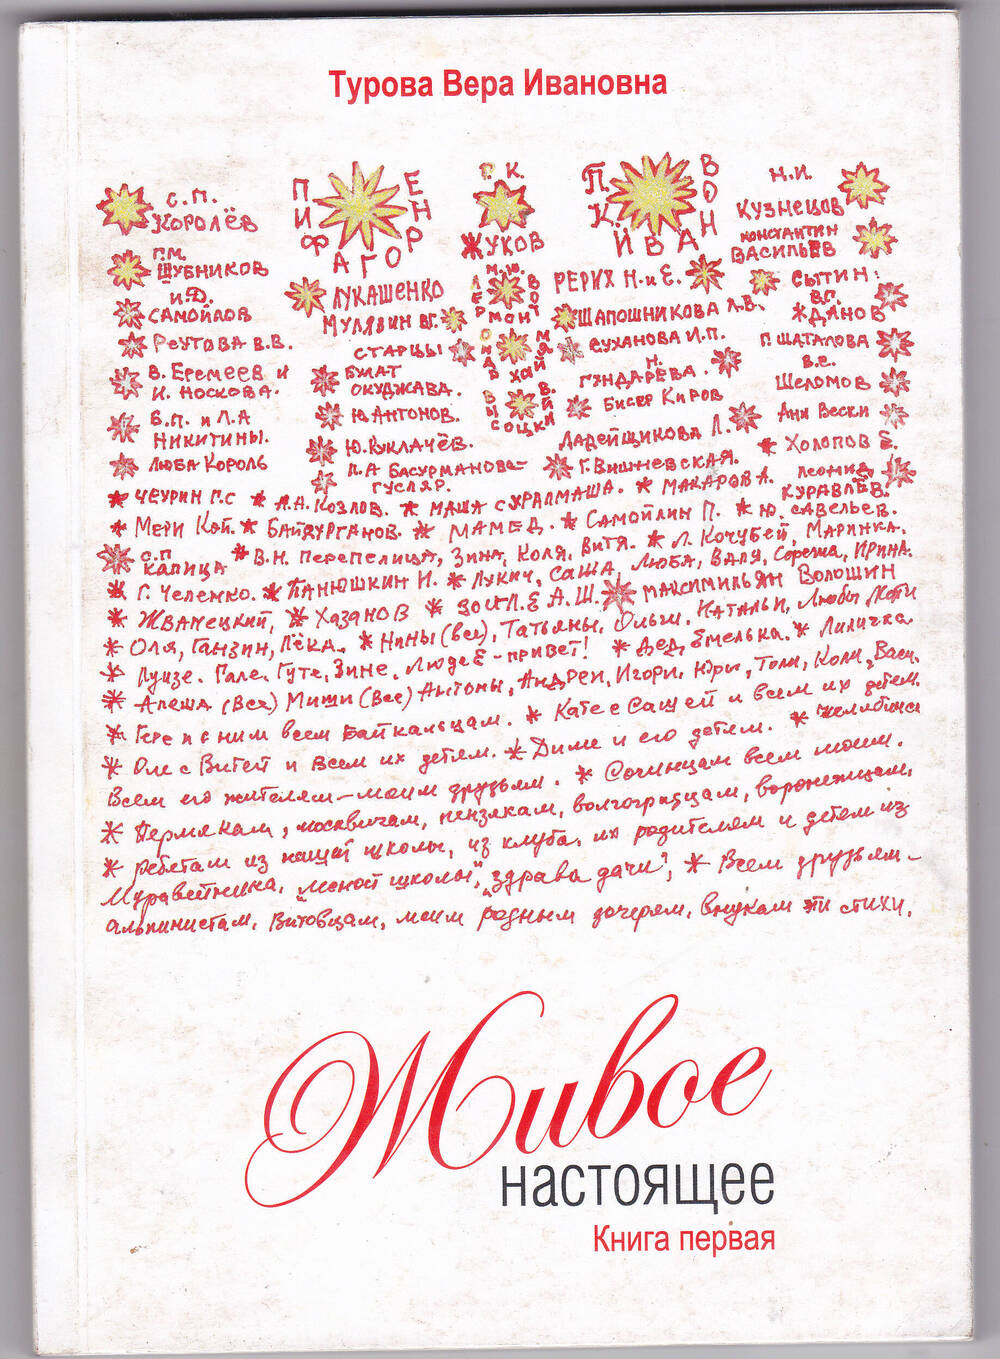 Турова Вера Ивановна
С.П. Королёв
Пифагор Пенер
Г.К. Жуков
П.К. Иванов
Н.И. Кузнецов
Константин Васильев
Г.М. Шубников
и Д. Самойлов
Лукашенко
М.Ю. Лермонтов
Рерих Н. и Е.
Сытин
В.Г. Жданов
Мулявин В.Г.
Шапошникова Л.В.
Реутова В.В.
Старцы
Омар Хайям
Суханова И.П.
Г. Шаталова
В. Еремеев и И. Носкова.
Булат Окуджава.
Н. Гундарева.
В.С. Шеломов
В. Высоцкий
Бисер Киров
Б.П. и Л.А Никитины.
Ю. Антонов.
Анн Вески
Ю. Куклачёв.
Дадейщикова Л.
* Холопов Е.
Люба Король
Л.А Басурманова-гусляр.
Г. Вишневская.
* Чеурин Г.С * А.Н. Козлов. * Маша с Уралмаша. * Макарова. Леонид Куравлёв.
* Мери Кой. * Байдурганов. * Мамед. * Самойлин П. * Ю. Савельев.
С.П Капица * В.Н. Перепелица, Зина, Коля, Витя. * Л. Кочубей, Маринка.
* Г. Челемко. * Панюшкин И. * Лукич, Саша, Люба, Валя, Сорежа, Ирина.
* Жванецкий, * Хазанов * Зоил.Е А.Ш. Максимильян Волошин
* Оля, Ганзин, Лёка. * Нины (все), Татьяны, Ольги, Натальи, Любы, Кати
* Луизе. Гале, Гуте, Зине, Люде Е - привет! * Дед Емелька. * Лиличка
* Алеша (Все) Миши (Все) Антоны, Андреи, Игори, Юры, Толи, Коли, Васи.
* Гере и с ним всем Байкальцам. * Кате с Сашей и всем их детям.
* Оле с Витей и всем их детям. * Диме и его детям. * Челябинск
Всем его жителям - моим друзьям. * Сочинцам всем моим.
* Пермякам, москвичам, пензякам, волгоградцам, воронежцам,
* ребятам из нашей школы, из клуба, их родителям и детям из
Мдраветника, "лесной школы", "здрава дачи"; * Всем друзьям -
альпинистам, Витовцам, моим родным дочерям, внукам эти стихи.
Живое
настоящее
Книга первая